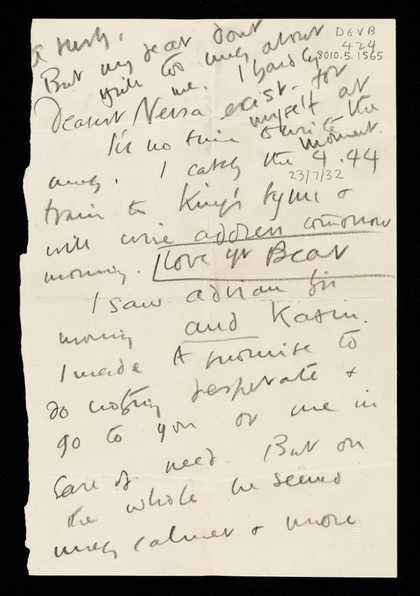 a rush.
But my dear dont
too much about
me. I hardly
exist for
myself at
the
moment.
DGVB
424
8010.5.1565
Dearest Nessa
no time to write
much. I catch the 4.44
23/7/32
train to King's Lynn &
will wire address tomorrow
morning. Love yr Bear
I saw Adrian this
morning and Karin.
I made A promise to
do nothing desperate &
go to you or me in
case of need. But on
the whole he seemed
much calmer & more